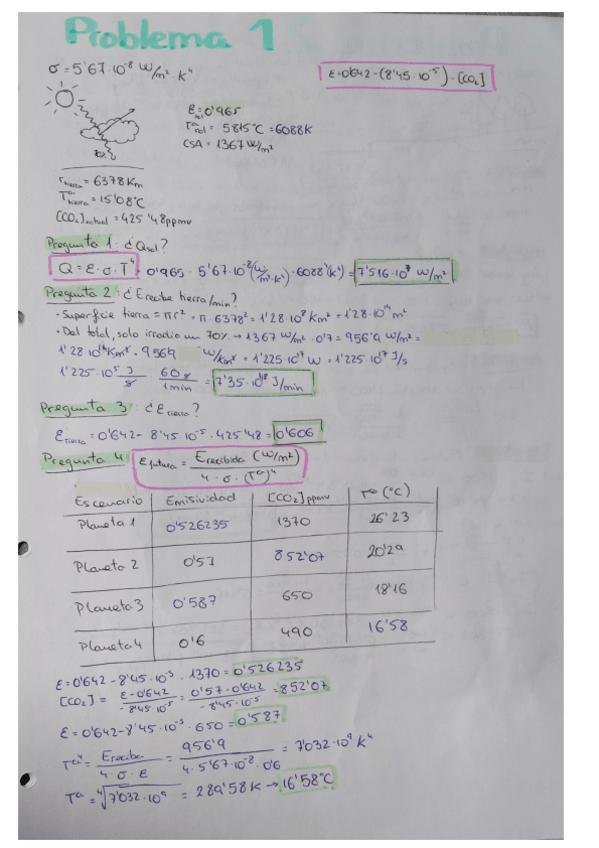 Problema 1
σ = 5'67·10⁻⁸ W/m²·K⁴
ε=0'642-(8'45·10⁻⁵)·[CO₂]
ε sol = 0'965
Tª sol = 5815°C = 6088K
CSA = 1367 W/m²
r tierra = 6378 Km
Tª tierra = 15'08°C
[CO₂] actual = 425'48 ppmv
Pregunta 1: ¿Qsol?
Q = ε·σ·T⁴ = 0'965 · 5'67·10⁻⁸ (W/m²·K⁴) · 6088⁴ (K⁴) = 7'516·10⁷ W/m²
Pregunta 2: ¿Erecibe tierra/min?
· Superficie tierra = πr² = π·6378² = 1'28·10⁸ Km² = 1'28·10¹⁴ m²
· Del total, solo irradia un 70% → 1367 W/m² · 0'7 = 956'9 W/m² =
1'28·10¹⁴ Km² · 956'9 W/Km² = 1'225·10¹⁷ W = 1'225·10¹⁷ J/s
1'225·10⁵ J/s · 60s/1min = 7'35·10¹⁸ J/min
Pregunta 3: ¿εtierra?
εtierra = 0'642 - 8'45·10⁻⁵ · 425'48 = 0'606
Pregunta 4: εfutura = Erecibida (W/m²) / 4·σ·(Tª)⁴
Escenario Emisividad [CO₂]ppmv Tª (°C)
Planeta 1 0'526235 1370 26'23
Planeta 2 0'57 852'07 20'29
Planeta 3 0'587 650 18'16
Planeta 4 0'6 490 16'58
ε = 0'642 - 8'45·10⁻⁵ · 1370 = 0'526235
[CO₂] = ε-0'642 / -8'45·10⁻⁵ = 0'57-0'642 / -8'45·10⁻⁵ = 852'07
ε = 0'642 - 8'45·10⁻⁵ · 650 = 0'587
Tª⁴ = Erecibe / 4·σ·ε = 956'9 / 4·5'67·10⁻⁸·0'6 = 7'032·10⁹ K⁴
Tª = ⁴√7'032·10⁹ = 289'58K → 16'58°C